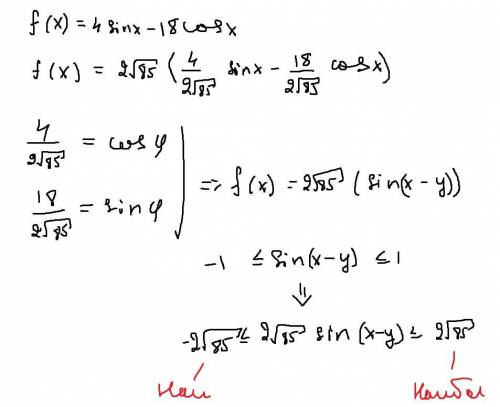 f(x) = 4 sinx - 18 cosx
f(x) = 2√85 (4/2√85 sinx - 18/2√85 cosx)
4/2√85 = cos φ
18/2√85 = sin φ
=> f(x) = 2√85 (sin(x - y))
-1 ≤ sin(x-y) ≤ 1
⇓
-2√85 ≤ 2√85 sin (x-y) ≤ 2√85
Наи
Наибол